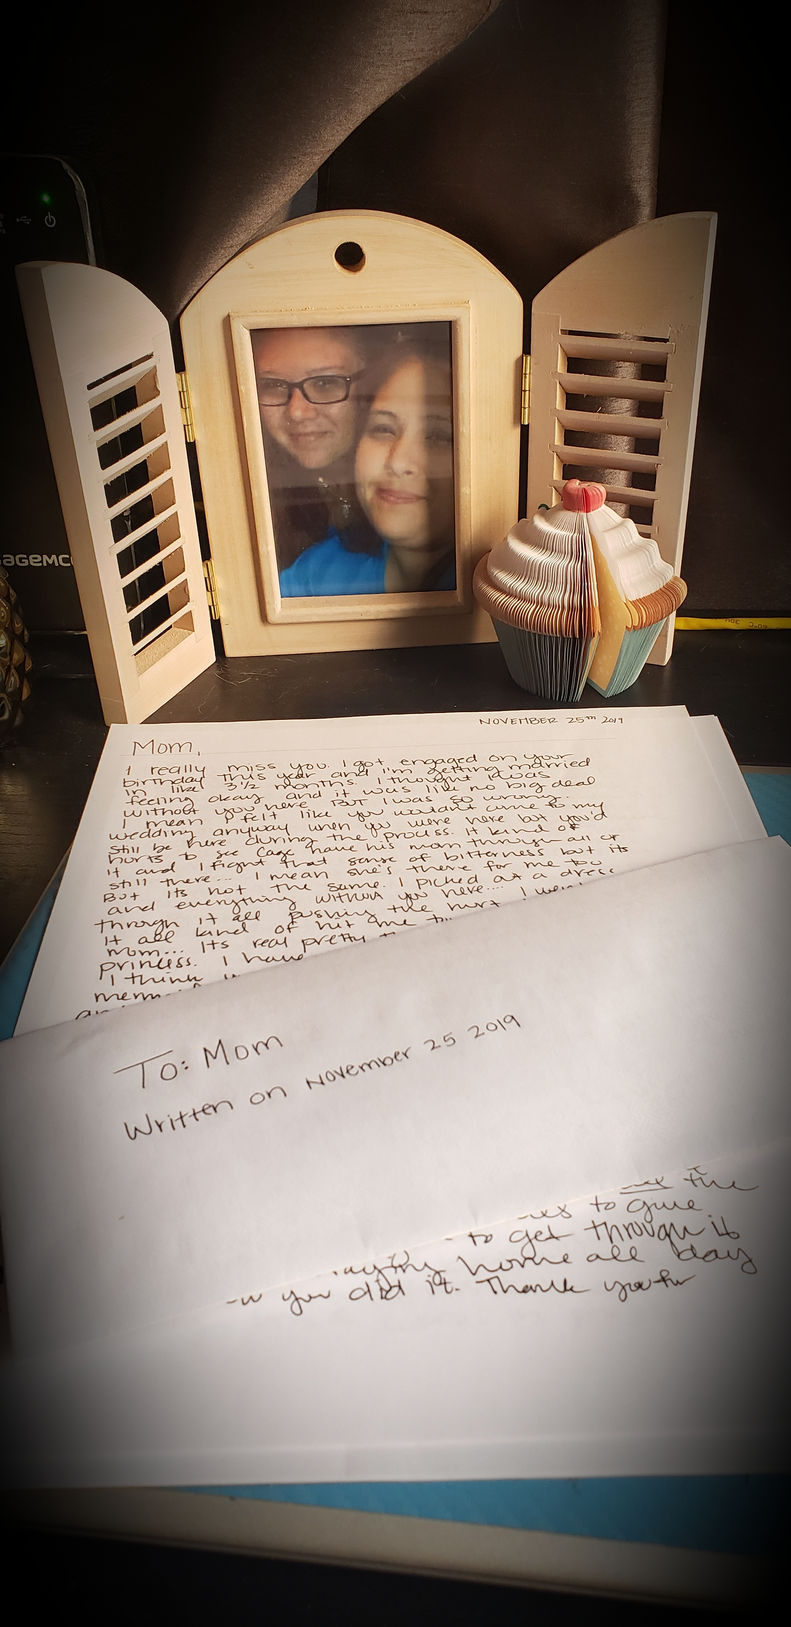 AGEMC
NOVEMBER 25th 2019
Mom,
I really miss you. I got engaged on your
birthday this year and I'm getting married
in like 3 1/2 months. I thought I was
feeling okay and it was like no big deal
without you here. BUT I was so wrong.
I mean I felt like you wouldnt come to my
wedding anyway when you were here but you'd
still be here during the process. It kind of
hurts to see Cage have his mom through all of
it and I fight that sense of bitterness but its
still there... I mean she's there for me too
But its not the same. I picked out a dress
and everything without you here....
through it all pushing the hurt
it all kind of hit me
mom... Its real pretty
princess. I have
I think
mem
an
To: Mom
Written on November 25 2019
the
to give
to get through it
home all day
you did it. Thank you for